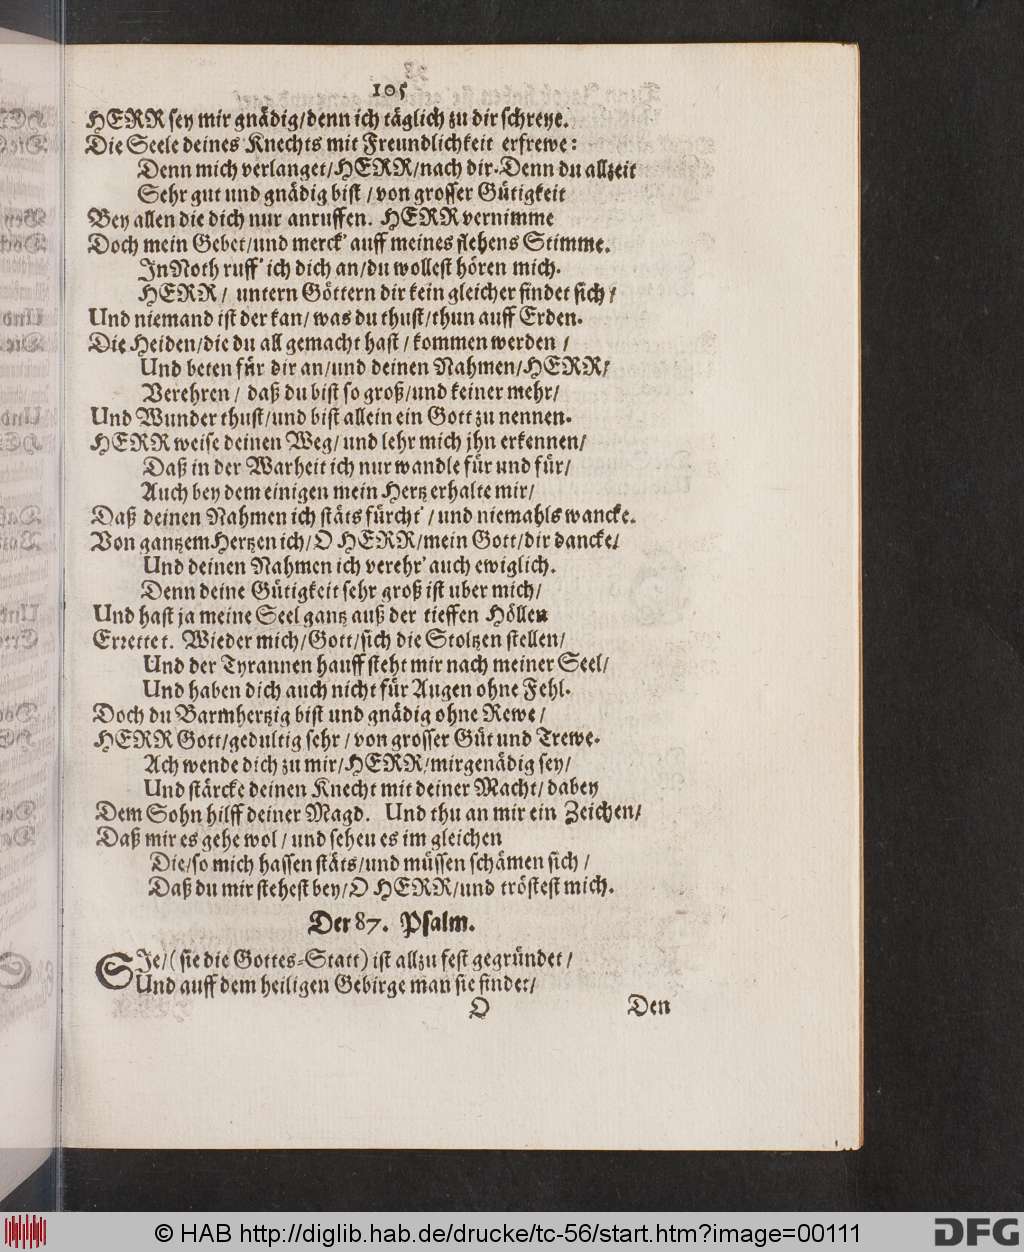 105
HERR sey mir gnädig/denn ich täglich zu dir schreye.
Die Seele deines Knechts mit Freundlichkeit erfrewe:
Denn mich verlanget/HERR/nach dir. Denn du allzeit
Sehr gut und gnädig bist/von grosser Gütigkeit
Bey allen die dich nur anruffen. HERR vernimme
Doch mein Gebet/und merck' auff meines flehens Stimme.
In Noth ruff' ich dich an/du wollest hören mich.
HERR/ untern Göttern dir kein gleicher findet sich/
Und niemand ist der kan/was du thust/thun auff Erden.
Die Heiden/die du all gemacht hast/kommen werden/
Und beten für dir an/und deinen Nahmen/HERR/
Verehren/ daß du bist so groß/und keiner mehr/
Und Wunder thust/und bist allein ein Gott zu nennen.
HERR weise deinen Weg/und lehr mich jhn erkennen/
Daß in der Warheit ich nur wandle für und für/
Auch bey dem einigen mein Hertz erhalte mir/
Daß deinen Nahmen ich stäts fürcht'/und niemahls wancke.
Von gantzem Hertzen ich/O HERR/mein Gott/dir dancke/
Und deinen Nahmen ich verehr' auch ewiglich.
Denn deine Gütigkeit sehr groß ist uber mich/
Und hast ja meine Seel gantz auß der tieffen Höllen
Errettet. Wieder mich/Gott/sich die Stoltzen stellen/
Und der Tyrannen hauff steht mir nach meiner Seel/
Und haben dich auch nicht für Augen ohne Fehl.
Doch du Barmhertzig bist und gnädig ohne Rewe/
HERR Gott/gedultig sehr/von grosser Güt und Trewe.
Ach wende dich zu mir/HERR/mir genädig sey/
Und stärcke deinen Knecht mit deiner Macht/dabey
Dem Sohn hilff deiner Magd. Und thu an mir ein Zeichen/
Daß mir es gehe wol/und seheu es im gleichen
Die/so mich hassen stäts/und müssen schämen sich/
Daß du mir stehest bey/O HERR/und tröstest mich.
Der 87. Psalm.
SIe/(sie die Gottes-Statt) ist allzu fest gegründet/
Und auff dem heiligen Gebirge man sie findet/
O Den
© HAB http://diglib.hab.de/drucke/tc-56/start.htm?image=00111
DFG